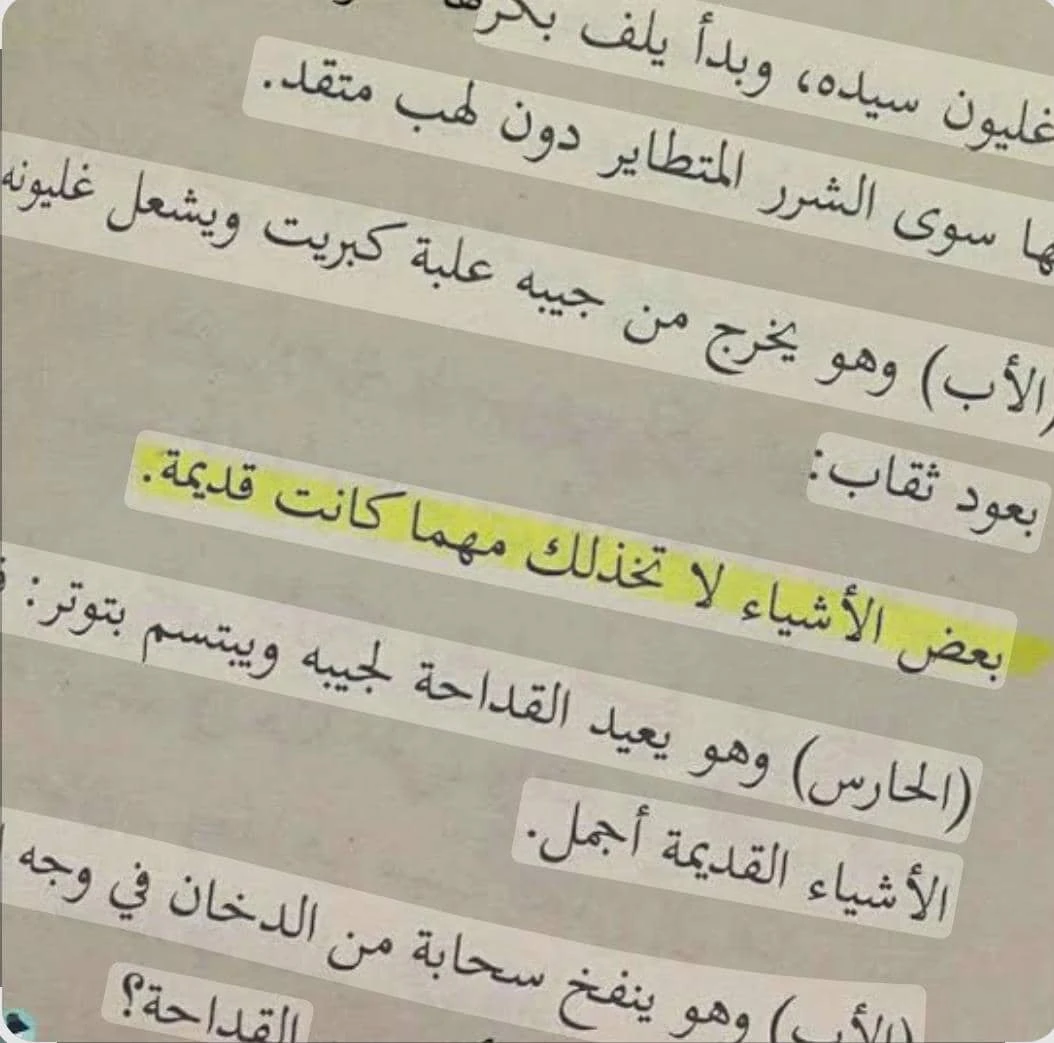 غليون سيده، وبدأ يلف بكرها
ها سوى الشرر المتطاير دون لهب متقد.
(الأب) وهو يخرج من جيبه علبة كبريت ويشعل غليونه
بعود ثقاب:
بعض الأشياء لا تخذلك مهما كانت قديمة.
(الحارس) وهو يعيد القداحة لجيبه ويبتسم بتوتر:
الأشياء القديمة أجمل.
(الأب) وهو ينفخ سحابة من الدخان في وجه
القداحة؟